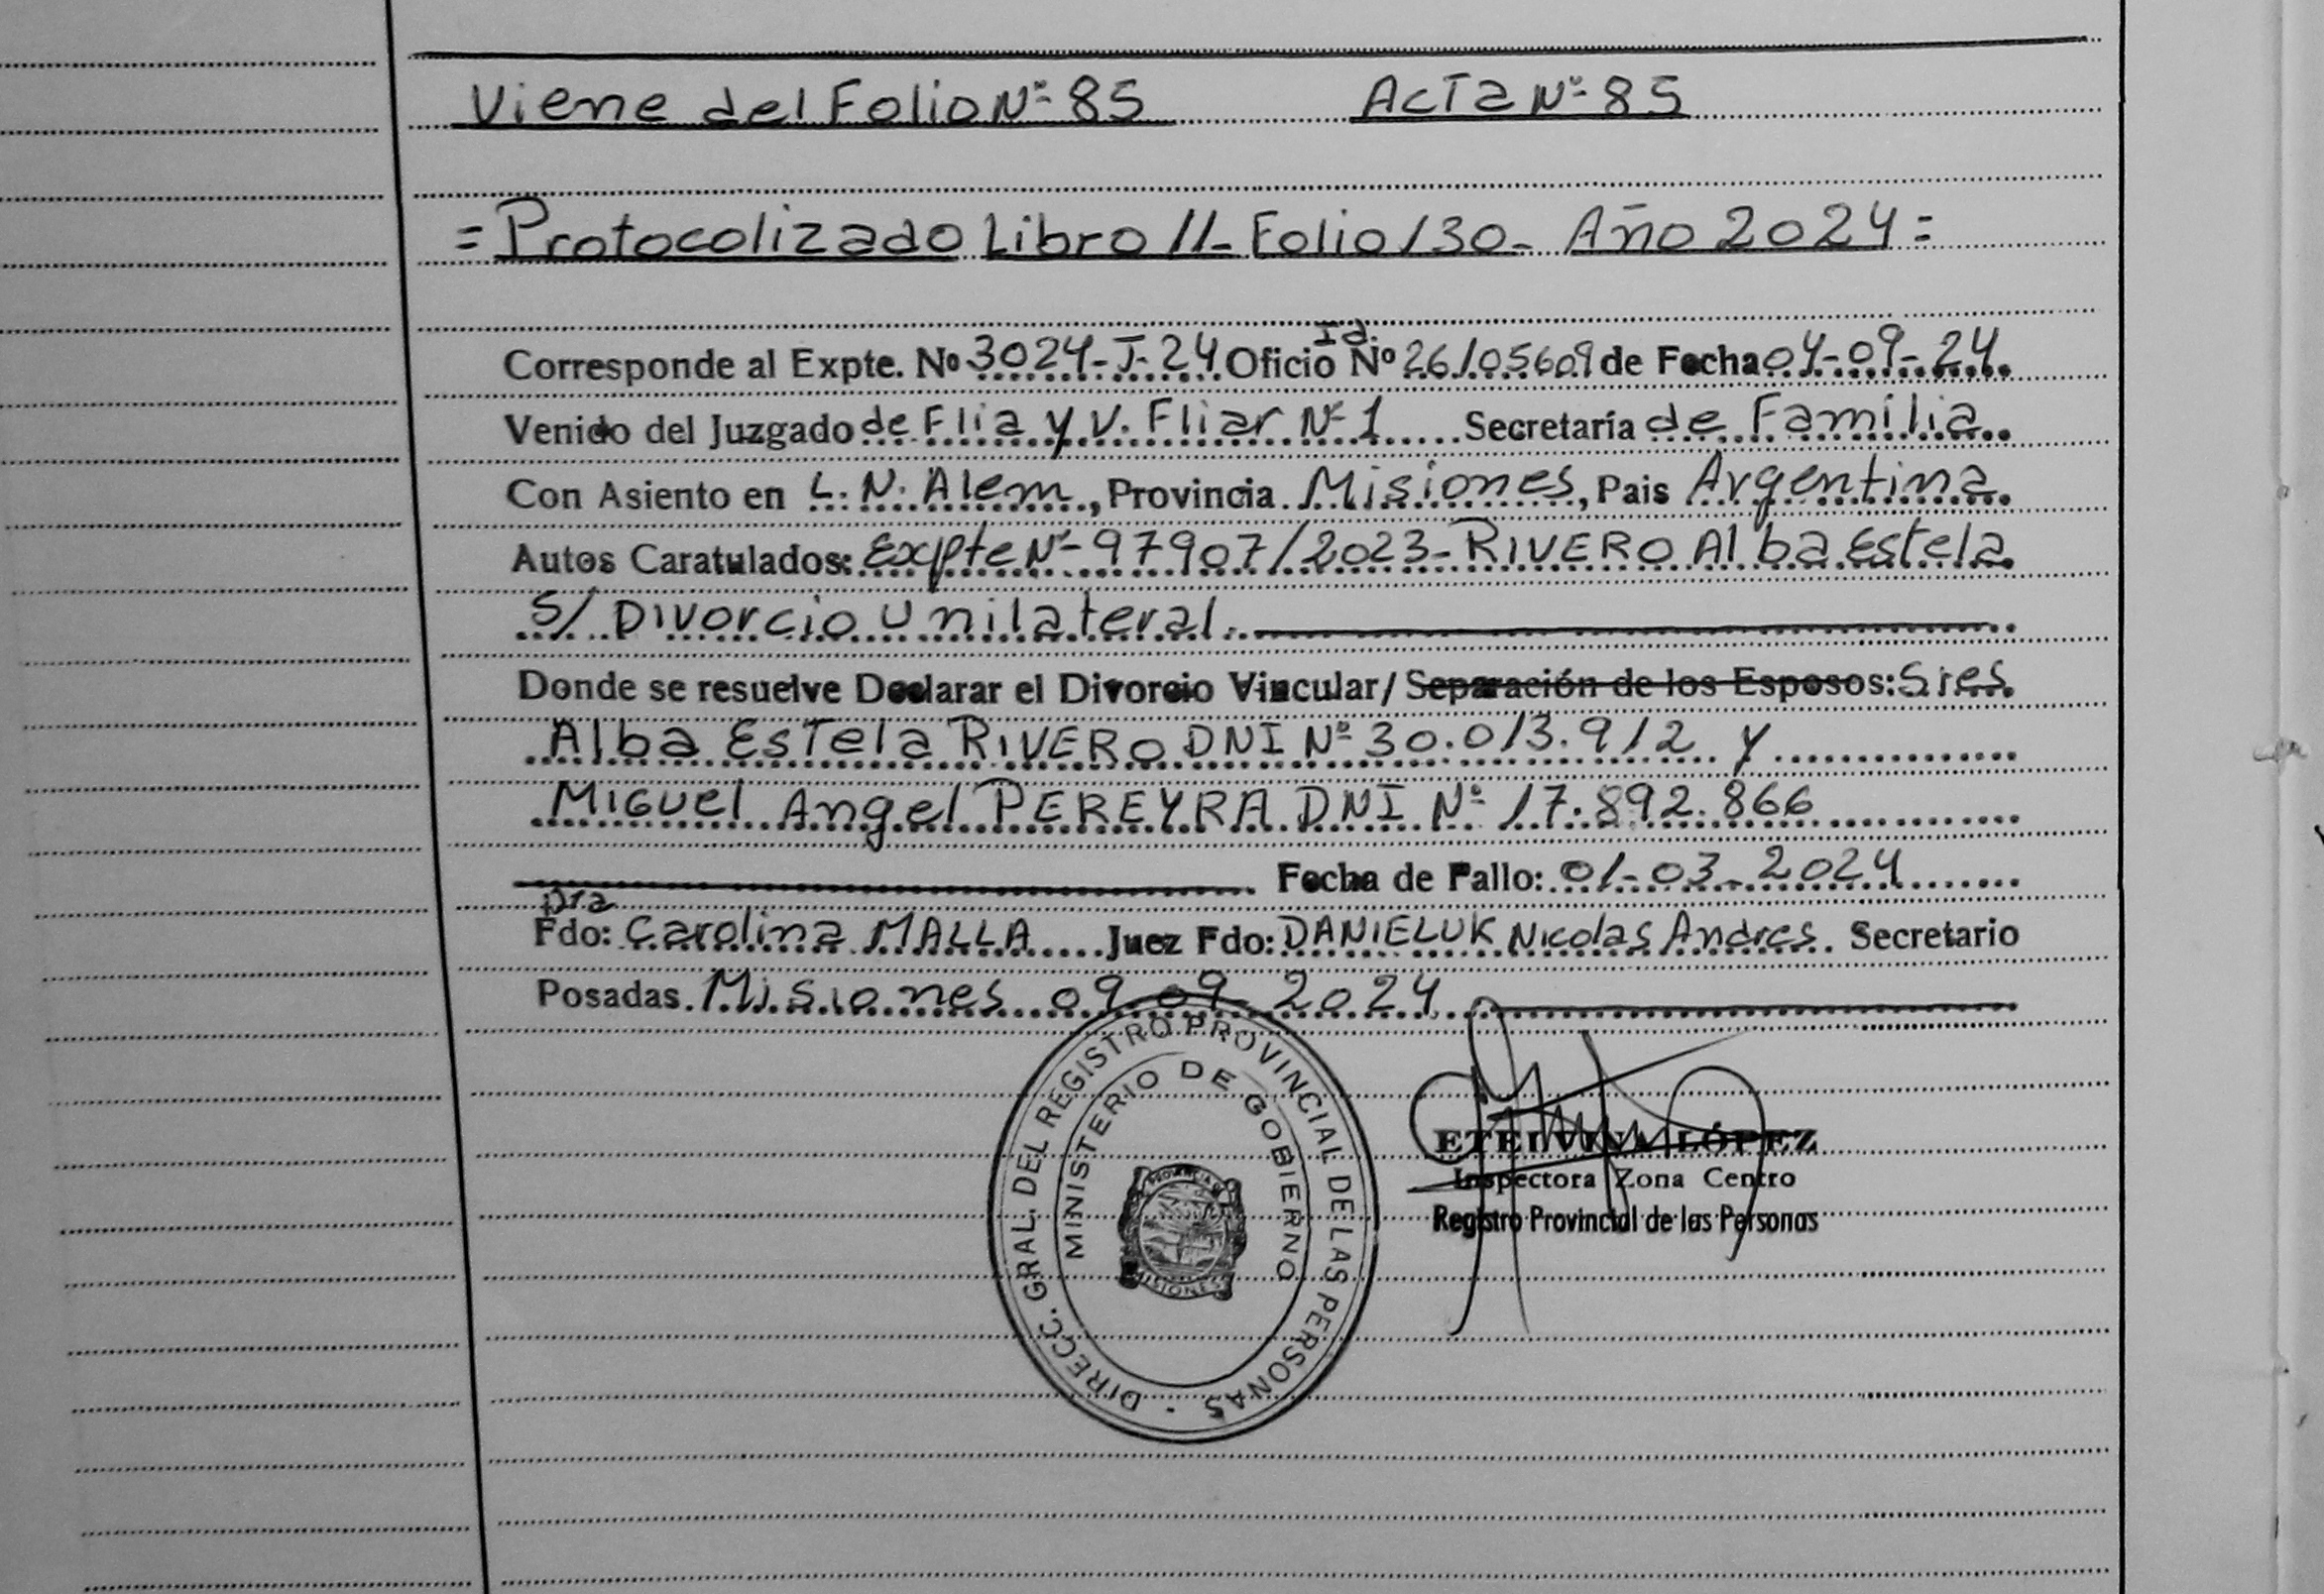 Viene del Folio Nº 85 Acta Nº 85
= Protocolizado Libro 11- Folio 130- Año 2024 =
Id.
Corresponde al Expte. Nº 3024-J-24 Oficio Nº 26105609 de Fecha 04-09-24
Venido del Juzgado de Flia y V. Fliar Nº 1 Secretaría de Familia
Con Asiento en L. N. Alem, Provincia Misiones, Pais Argentina
Autos Caratulados: Expte Nº 97907/2023- RIVERO Alba Estela
S/ Divorcio Unilateral.
Donde se resuelve Declarar el Divorcio Vincular/ Separación de los Esposos: Sres
Alba Estela RIVERO DNI Nº 30.013.912 y
Miguel Angel PEREYRA DNI Nº 17.892.866
Fecha de Fallo: 01-03-2024
Dra
Fdo: Carolina MALLA Juez Fdo: DANIELUK Nicolas Andres. Secretario
Posadas. Misiones 09-09-2024
DIRECC. GRAL. DEL REGISTRO PROVINCIAL DE LAS PERSONAS
MINISTERIO DE GOBIERNO
PROVINCIA DE
MISIONES
ETELVINA LÓPEZ
Inspectora Zona Centro
Registro Provincial de las Personas